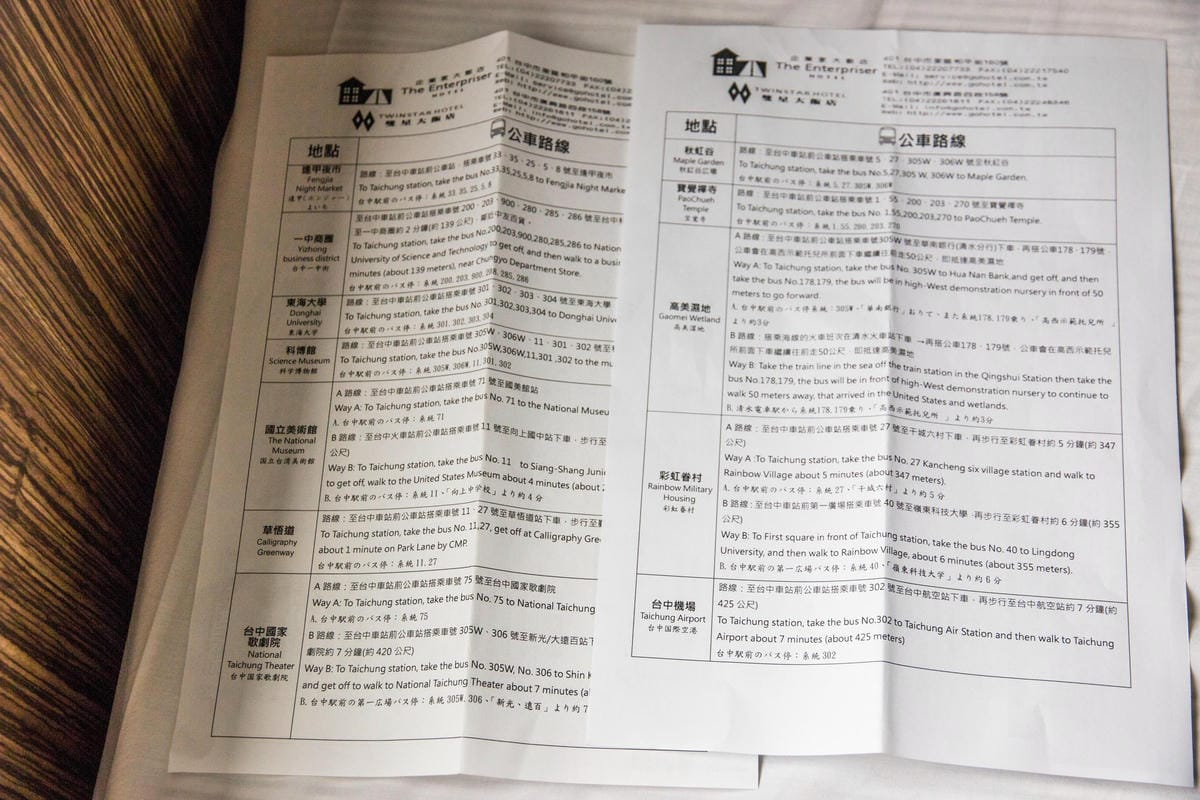 企業家大飯店
The Enterpriser
HOTEL
TWINSTAR HOTEL
雙星大飯店
401 台中市東區和平街160號
TEL:(04)22207733
地點
公車路線
逢甲夜市
Fengjia
Night Market
逢甲(ホンジャー)
よいち
路線：至台中車站前公車站，搭乘車號 33、35、25、5、8 號至逢甲夜市
To Taichung station, take the bus No.33,35,25,5,8 to Fengjia Night Marke
台中駅前のバス停：系統 33, 35, 25, 5, 8
一中商圈
Yizhong
business district
台中一中街
路線：至台中車站前公車站搭乘車號 200、203、900、280、285、286 號至台中
至一中商圈約 2 分鐘(約 139 公尺)，鄰近中友百貨。
To Taichung station, take the bus No.200,203,900,280,285,286 to Nation
University of Science and Technology to get off, and then walk to a busin
minutes (about 139 meters), near Chungyo Department Store.
台中駅前のバス停：系統 200, 203, 900, 280, 285, 286
東海大學
Donghai
University
東海大学
路線：至台中車站前公車站搭乘車號 301、302、303、304 號至東海大學
To Taichung station, take the bus No.301,302,303,304 to Donghai Unive
台中駅前のバス停：系統 301, 302, 303, 304
科博館
Science Museum
科学博物館
路線：至台中車站前公車站搭乘車號 305W、306W、11、301、302 號至
To Taichung station, take the bus No.305W,306W,11,301 ,302 to the mu
台中駅前のバス停：系統305W, 306W, 11, 301, 302
國立美術館
The National
Museum
国立台湾美術館
A 路線：至台中車站前公車站搭乘車號 71 號至國美館站
Way A: To Taichung station, take the bus No. 71 to the National Museu
A. 台中駅前のバス停：系統 71
B 路線：至台中火車站前公車站搭乘車號 11 號至向上國中站下車，步行至
公尺)
Way B: To Taichung station, take the bus No.11 to Siang-Shang Juni
to get off, walk to the United States Museum about 4 minutes (about 2
B. 台中駅前のバス停：系統 11、「向上中学校」より約 4 分
草悟道
Calligraphy
Greenway
路線：至台中車站前公車站搭乘車號 11、27 號至草悟道站下車，步行至
To Taichung station, take the bus No. 11,27, get off at Calligraphy Gree
about 1 minute on Park Lane by CMP.
台中駅前のバス停：系統 11, 27
台中國家
歌劇院
National
Taichung Theater
台中国家歌劇院
A 路線：至台中車站前公車站搭乘車號 75 號至台中國家歌劇院
Way A: To Taichung station, take the bus No. 75 to National Taichung
A. 台中駅前のバス停：系統 75
B 路線：至台中車站前公車站搭乘車號 305W、306 號至新光/大遠百站下
劇院約 7 分鐘(約 420 公尺)
Way B: To Taichung station, take the bus No. 305W, No. 306 to Shin K
and get off to walk to National Taichung Theater about 7 minutes (a
B. 台中駅前の第一広場バス停：系統 305W, 306、「新光、遠百」より約 7
企業家大飯店
The Enterpriser
HOTEL
TWINSTAR HOTEL
雙星大飯店
401 台中市東區和平街160號
TEL:(04)22207733 FAX:(04)22217540
地點
公車路線
秋紅谷
Maple Garden
秋紅谷広場
路線：至台中車站前公車站搭乘車號 5、27、305W、306W 號至秋紅谷
To Taichung station, take the bus No.5,27,305 W, 306W to Maple Garden.
台中駅前のバス停：系統 5, 27, 305W, 306W
寶覺禪寺
PaoChueh
Temple
宝覚寺
路線：至台中車站前公車站搭乘車號 1、55、200、203、270 號至寶覺禪寺
To Taichung station, take the bus No. 1,55,200,203,270 to PaoChueh Temple.
台中駅前のバス停：系統 1, 55, 200, 203, 270
高美濕地
Gaomei Wetland
高美湿地
A 路線：至台中車站前公車站搭乘車號305W 號至華南銀行(清水分行)下車，再搭公車178、179號，
公車會在高西示範托兒所前面下車繼續往前走50公尺，即抵達高美濕地
Way A: To Taichung station, take the bus No. 305W to Hua Nan Bank,and get off, and then
take the bus No.178,179, the bus will be in high-West demonstration nursery in front of 50
meters to go forward.
A. 台中駅前のバス停系統：305W、「華南銀行」おりて、また系統178, 179乗り、「高西示範托兒所 」
より約3分
B 路線：搭乘海線的火車班次在清水火車站下車 →再搭公車178、179號，公車會在高西示範托兒
所前面下車繼續往前走50公尺，即抵達高美濕地
Way B: Take the train line in the sea off the train station in the Qingshui Station then take the
bus No.178,179, the bus will be in front of high-West demonstration nursery to continue to
walk 50 meters away, that arrived in the United States and wetlands.
B. 清水電車駅から系統178, 179乗り、「高西示範托兒所 」より約3分
彩虹眷村
Rainbow Military
Housing
彩虹眷村
A 路線：至台中車站前公車站搭乘車號 27 號至干城六村下車，再步行至彩虹眷村約 5 分鐘(約 347
公尺)
Way A :To Taichung station, take the bus No. 27 Kancheng six village station and walk to
Rainbow Village about 5 minutes (about 347 meters).
A. 台中駅前のバス停：系統 27、「干城六村」より約 5 分
B 路線：至台中車站前第一廣場搭乘車號 40 號至嶺東科技大學，再步行至彩虹眷村約 6 分鐘(約 355
公尺)
Way B: To First square in front of Taichung station, take the bus No. 40 to Lingdong
University, and then walk to Rainbow Village, about 6 minutes (about 355 meters).
B. 台中駅前の第一広場バス停：系統 40、「嶺東科技大学」より約 6 分
台中機場
Taichung Airport
台中国際空港
路線：至台中車站前公車站搭乘車號 302 號至台中航空站下車，再步行至台中航空站約 7 分鐘(約
425 公尺)
To Taichung station, take the bus No.302 to Taichung Air Station and then walk to Taichung
Airport about 7 minutes (about 425 meters)
台中駅前のバス停：系統 302